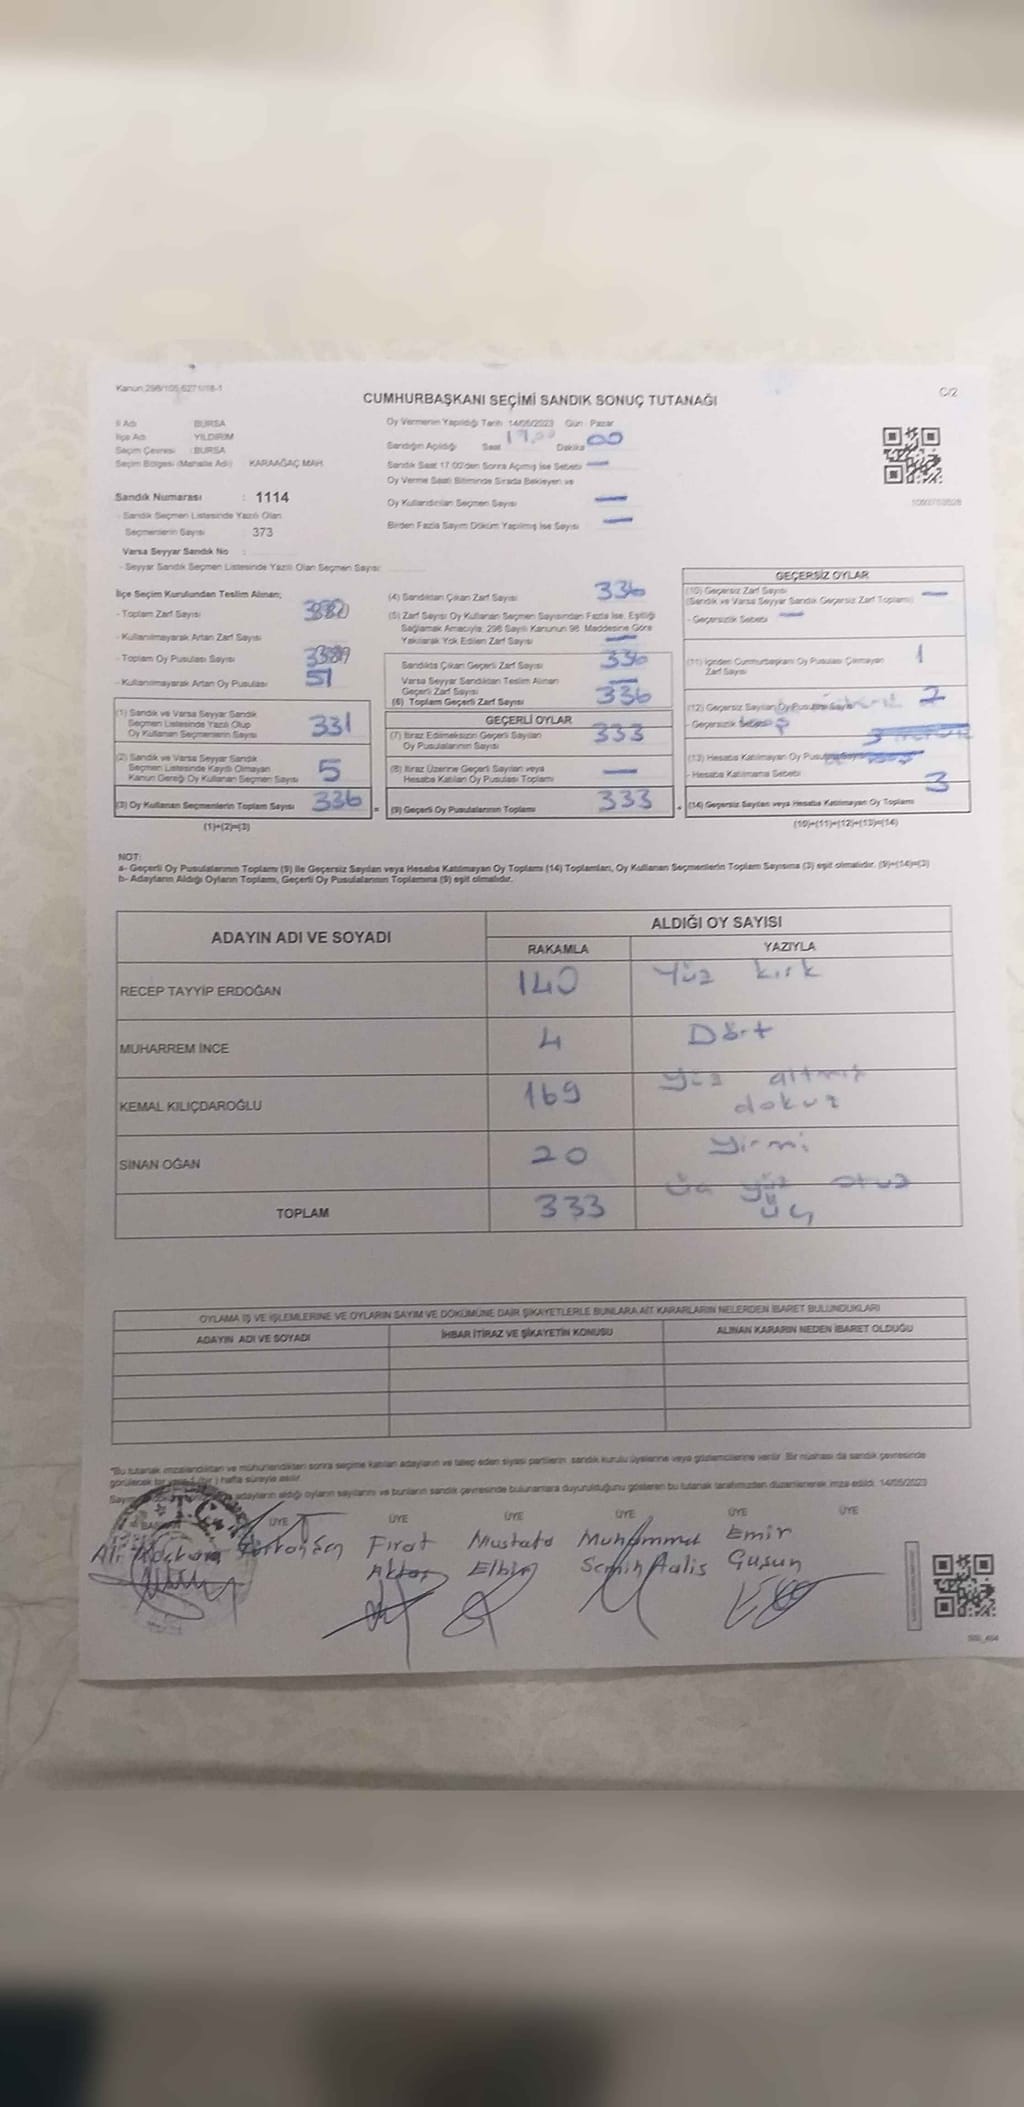 Kanun:298/105,6271/18-1
C/2
CUMHURBAŞKANI SEÇİMİ SANDIK SONUÇ TUTANAĞI
İl Adı BURSA
İlçe Adı YILDIRIM
Seçim Çevresi : BURSA
Seçim Bölgesi (Mahalle Adı) KARAAĞAÇ MAH.
Sandık Numarası : 1114
- Sandık Seçmen Listesinde Yazılı Olan
Seçmenlerin Sayısı 373
Varsa Seyyar Sandık No :
- Seyyar Sandık Seçmen Listesinde Yazılı Olan Seçmen Sayısı
Oy Vermenin Yapıldığı Tarih 14/05/2023 Gün : Pazar
Sandığın Açıldığı Saat Dakika 00
Sandık Saat 17:00'den Sonra Açılmış İse Sebebi —
Oy Verme Saati Bitiminde Sırada Bekleyen ve
Oy Kullandırılan Seçmen Sayısı —
Birden Fazla Sayım Döküm Yapılmış İse Sayısı —
İlçe Seçim Kurulundan Teslim Alınan;
- Toplam Zarf Sayısı
- Kullanılmayarak Artan Zarf Sayısı
- Toplam Oy Pusulası Sayısı
- Kullanılmayarak Artan Oy Pusulası 51
(1) Sandık ve Varsa Seyyar Sandık
Seçmen Listesinde Yazılı Olup
Oy Kullanan Seçmenlerin Sayısı 331
(2) Sandık ve Varsa Seyyar Sandık
Seçmen Listesinde Kayıtlı Olmayan
Kanun Gereği Oy Kullanan Seçmen Sayısı 5
(3) Oy Kullanan Seçmenlerin Toplam Sayısı 336 =
(1)+(2)=(3)
(4) Sandıktan Çıkan Zarf Sayısı 336
(5) Zarf Sayısı Oy Kullanan Seçmen Sayısından Fazla İse, Eşitliği
Sağlamak Amacıyla, 298 Sayılı Kanunun 98. Maddesine Göre
Yakılarak Yok Edilen Zarf Sayısı —
Sandıkta Çıkan Geçerli Zarf Sayısı 336
Varsa Seyyar Sandıktan Teslim Alınan
Geçerli Zarf Sayısı —
(6) Toplam Geçerli Zarf Sayısı 336
GEÇERLİ OYLAR
(7) İtiraz Edilmeksizin Geçerli Sayılan
Oy Pusulalarının Sayısı 333
(8) İtiraz Üzerine Geçerli Sayılan veya
Hesaba Katılan Oy Pusulası Toplamı —
(9) Geçerli Oy Pusulalarının Toplamı 333 +
GEÇERSİZ OYLAR
(10) Geçersiz Zarf Sayısı —
(Sandık ve Varsa Seyyar Sandık Geçersiz Zarf Toplamı)
- Geçersizlik Sebebi —
(11) İçinden Cumhurbaşkanı Oy Pusulası Çıkmayan 1
Zarf Sayısı
(12) Geçersiz Sayılan Oy Pusulası Sayısı 2
- Geçersizlik
(13) Hesaba Katılmayan Oy Pusulası Sayısı
- Hesaba Katılmama Sebebi
(14) Geçersiz Sayılan veya Hesaba Katılmayan Oy Toplamı 3
(10)+(11)+(12)+(13)=(14)
NOT:
a- Geçerli Oy Pusulalarının Toplamı (9) ile Geçersiz Sayılan veya Hesaba Katılmayan Oy Toplamı (14) Toplamları, Oy Kullanan Seçmenlerin Toplam Sayısına (3) eşit olmalıdır. (9)+(14)=(3)
b- Adayların Aldığı Oyların Toplamı, Geçerli Oy Pusulalarının Toplamına (9) eşit olmalıdır.
ADAYIN ADI VE SOYADI
ALDIĞI OY SAYISI
RAKAMLA YAZIYLA
RECEP TAYYİP ERDOĞAN 140 Yüz kırk
MUHARREM İNCE 4 Dört
KEMAL KILIÇDAROĞLU 169 Yüz altmış dokuz
SİNAN OĞAN 20 Yirmi
TOPLAM 333 üç yüz otuz üç
OYLAMA İŞ VE İŞLEMLERİNE VE OYLARIN SAYIM VE DÖKÜMÜNE DAİR ŞİKAYETLERLE BUNLARA AİT KARARLARIN NELERDEN İBARET BULUNDUKLARI
ADAYIN ADI VE SOYADI İHBAR İTİRAZ VE ŞİKAYETİN KONUSU ALINAN KARARIN NEDEN İBARET OLDUĞU
*Bu tutanak imzalandıktan ve mühürlendikten sonra seçime katılan adayların ve talep eden siyasi partilerin sandık kurulu üyelerine veya gözlemcilerine verilir. Bir nüshası da sandık çevresinde
görülecek bir yere 1 (bir) hafta süreyle asılır.
adayların aldığı oyların sayılarını ve bunların sandık çevresinde bulunanlara duyurulduğunu gösteren bu tutanak tarafımızdan düzenlenerek imza edildi. 14/05/2023
BAŞKAN ÜYE ÜYE ÜYE ÜYE ÜYE ÜYE
Ali Fırat Mustafa Muhammed Emir
Aktaş Elbir Semih